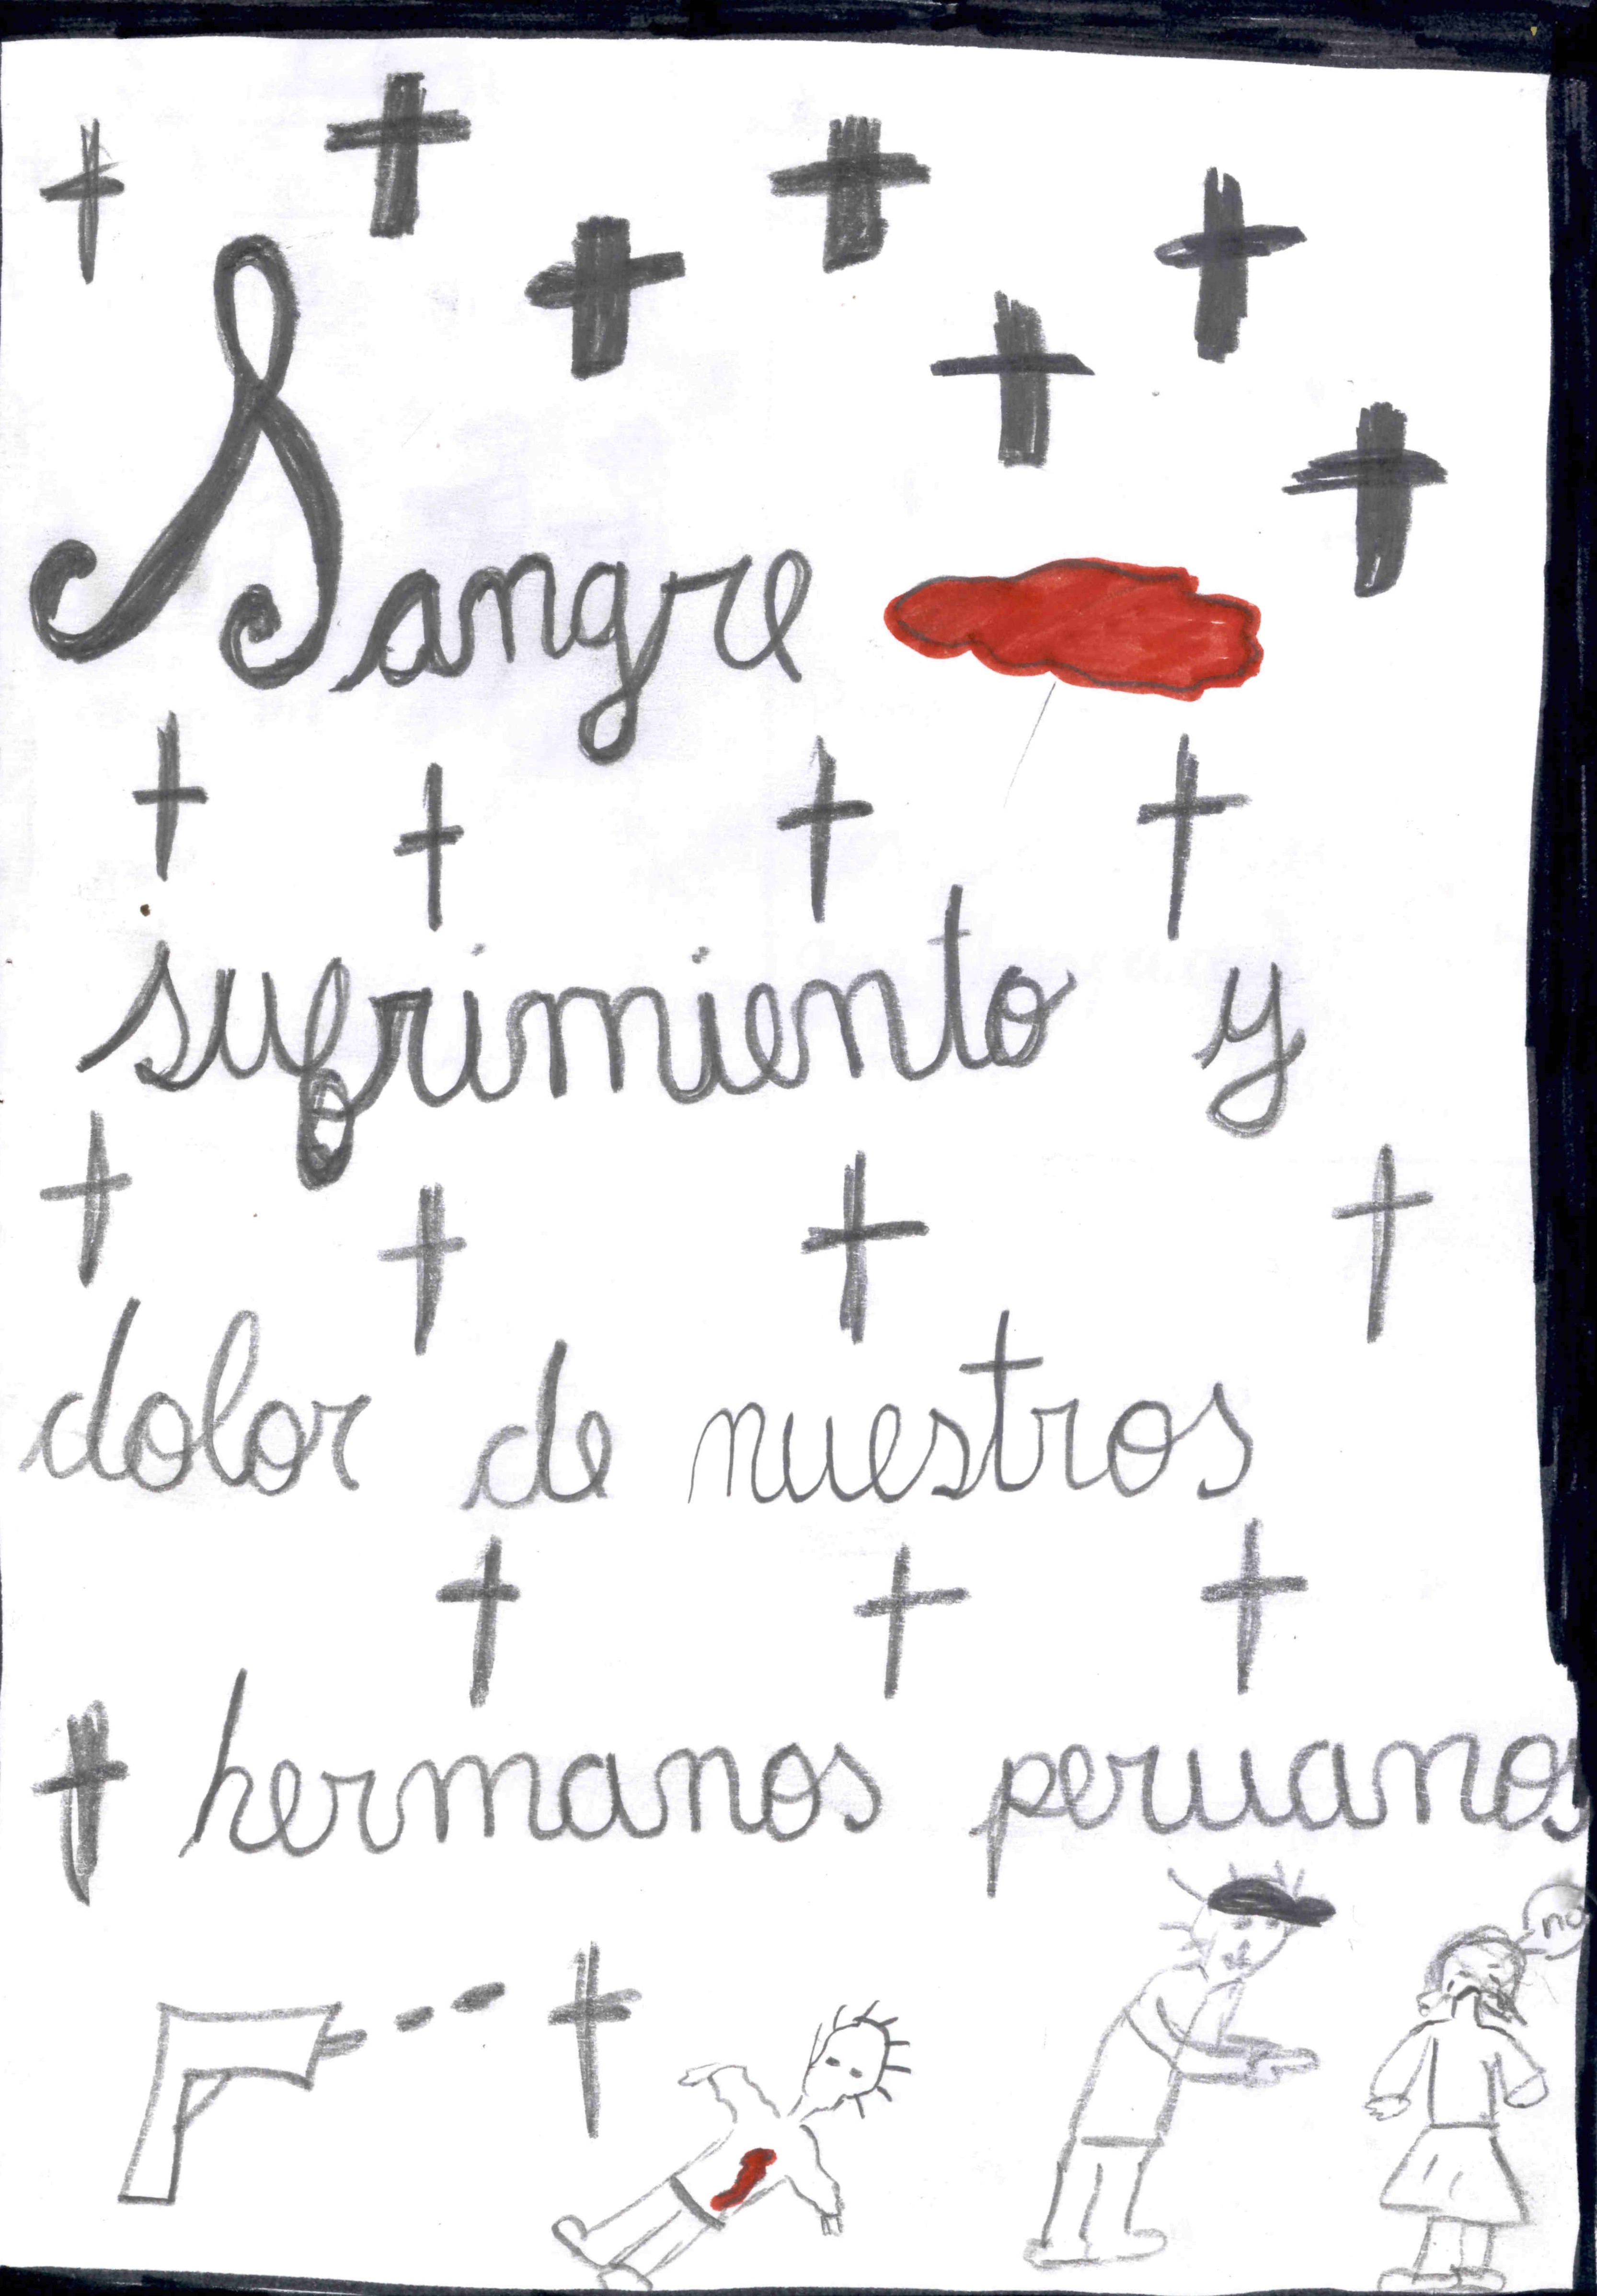 Sangre
sufrimiento y
dolor de nuestros
hermanos peruanos
no